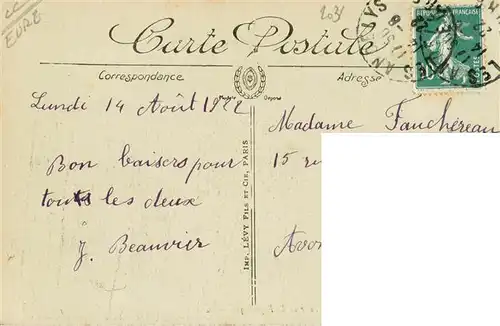 EURE
2031
Carte Postale
Correspondance
Adresse
Lundi 14 Août 1922
Bon baisers pour
tous les deux
J. Beauvier
IMP. LÉVY FILS ET CIE, PARIS
Madame Fauchéreau
15 ru
Avo